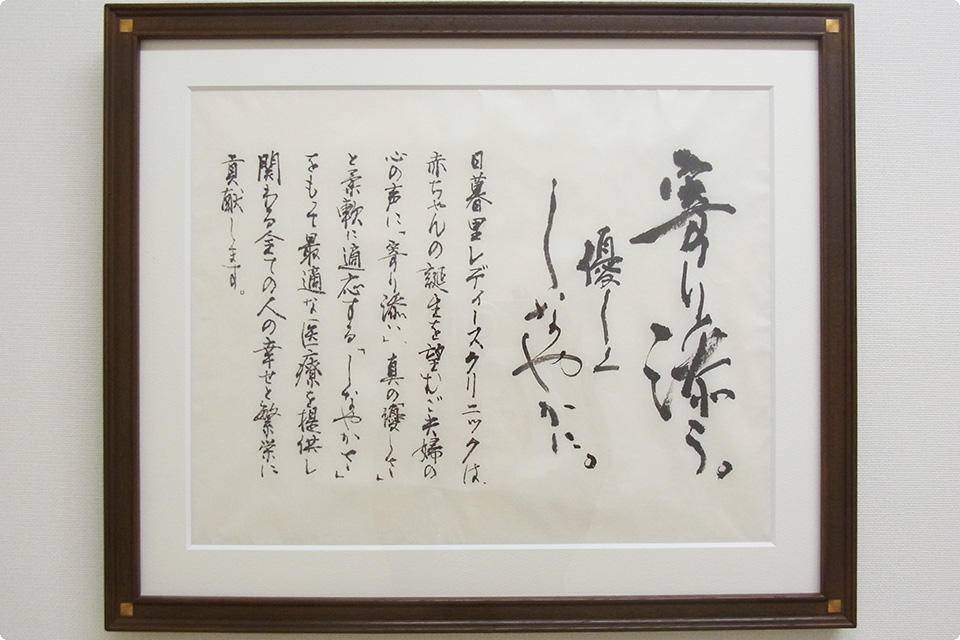 寄り添う。
優しく
しなやかに。
日暮里レディースクリニックは、
赤ちゃんの誕生を望むご夫婦の
心の声に「寄り添い」、真の「優しさ」
と柔軟に適応する「しなやかさ」
をもって最適な医療を提供し
関わる全ての人の幸せと繁栄に
貢献します。